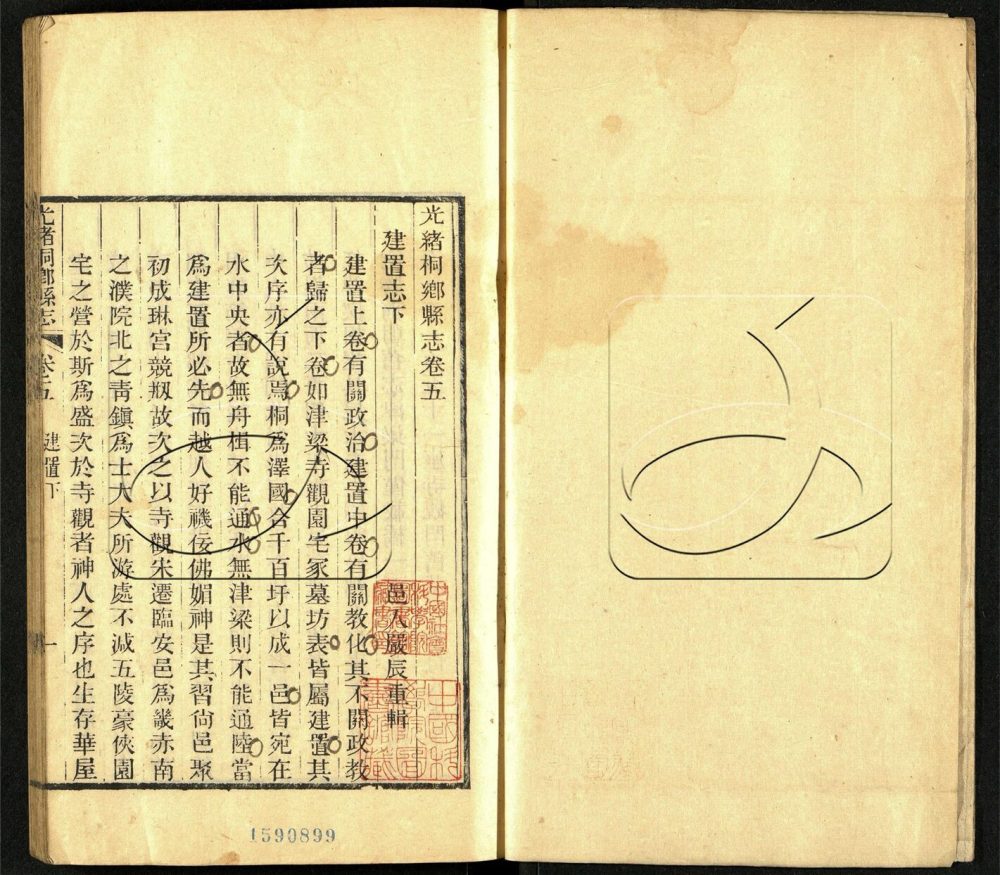 光緒桐鄉縣志卷五
建置志下
邑人嚴辰重輯
建置上卷有關政治建置中卷有關教化其不關政教
者歸之下卷如津梁寺觀園宅冢墓坊表皆屬建置其
次序亦有說焉桐爲澤國合千百圩以成一邑皆宛在
水中央者故無舟楫不能通水無津梁則不能通陸當
爲建置所必先而越人好禨佞佛媚神是其習尙邑聚
初成琳宮競剏故次之以寺觀宋遷臨安邑爲畿赤南
之濮院北之靑鎭爲士大夫所游處不減五陵豪俠園
宅之營於斯爲盛次於寺觀者神人之序也生存華屋
光緒桐鄉縣志
卷五
建置下
一
1590899